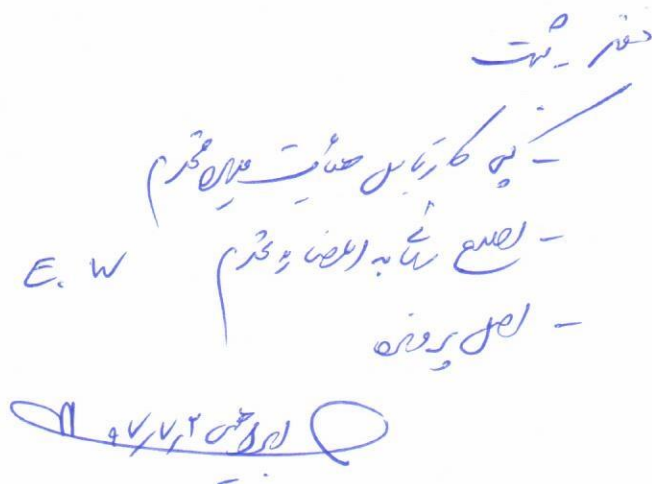 دفتر ثبت
- کپی کارتابل هیأت مدیره محترم
- اطلاع رسانی به اعضاء محترم E. W
- اصل پرونده
۹۷/۷/۲